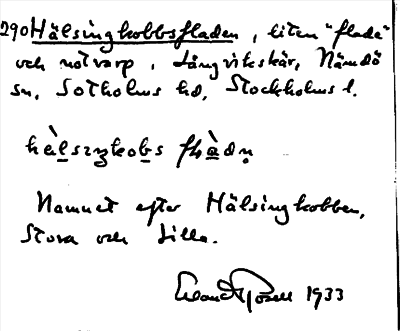 290 Hälsingkobbsfladen, liten "flada"
och notvarp, Långvikskär, Nämdö
sn, Sotholms hd, Stockholms l.
hèl̲sɪŋkob̲s fḷà̲dṇ
Namnet efter Hälsingkobben,
Stora och Lilla.
1933